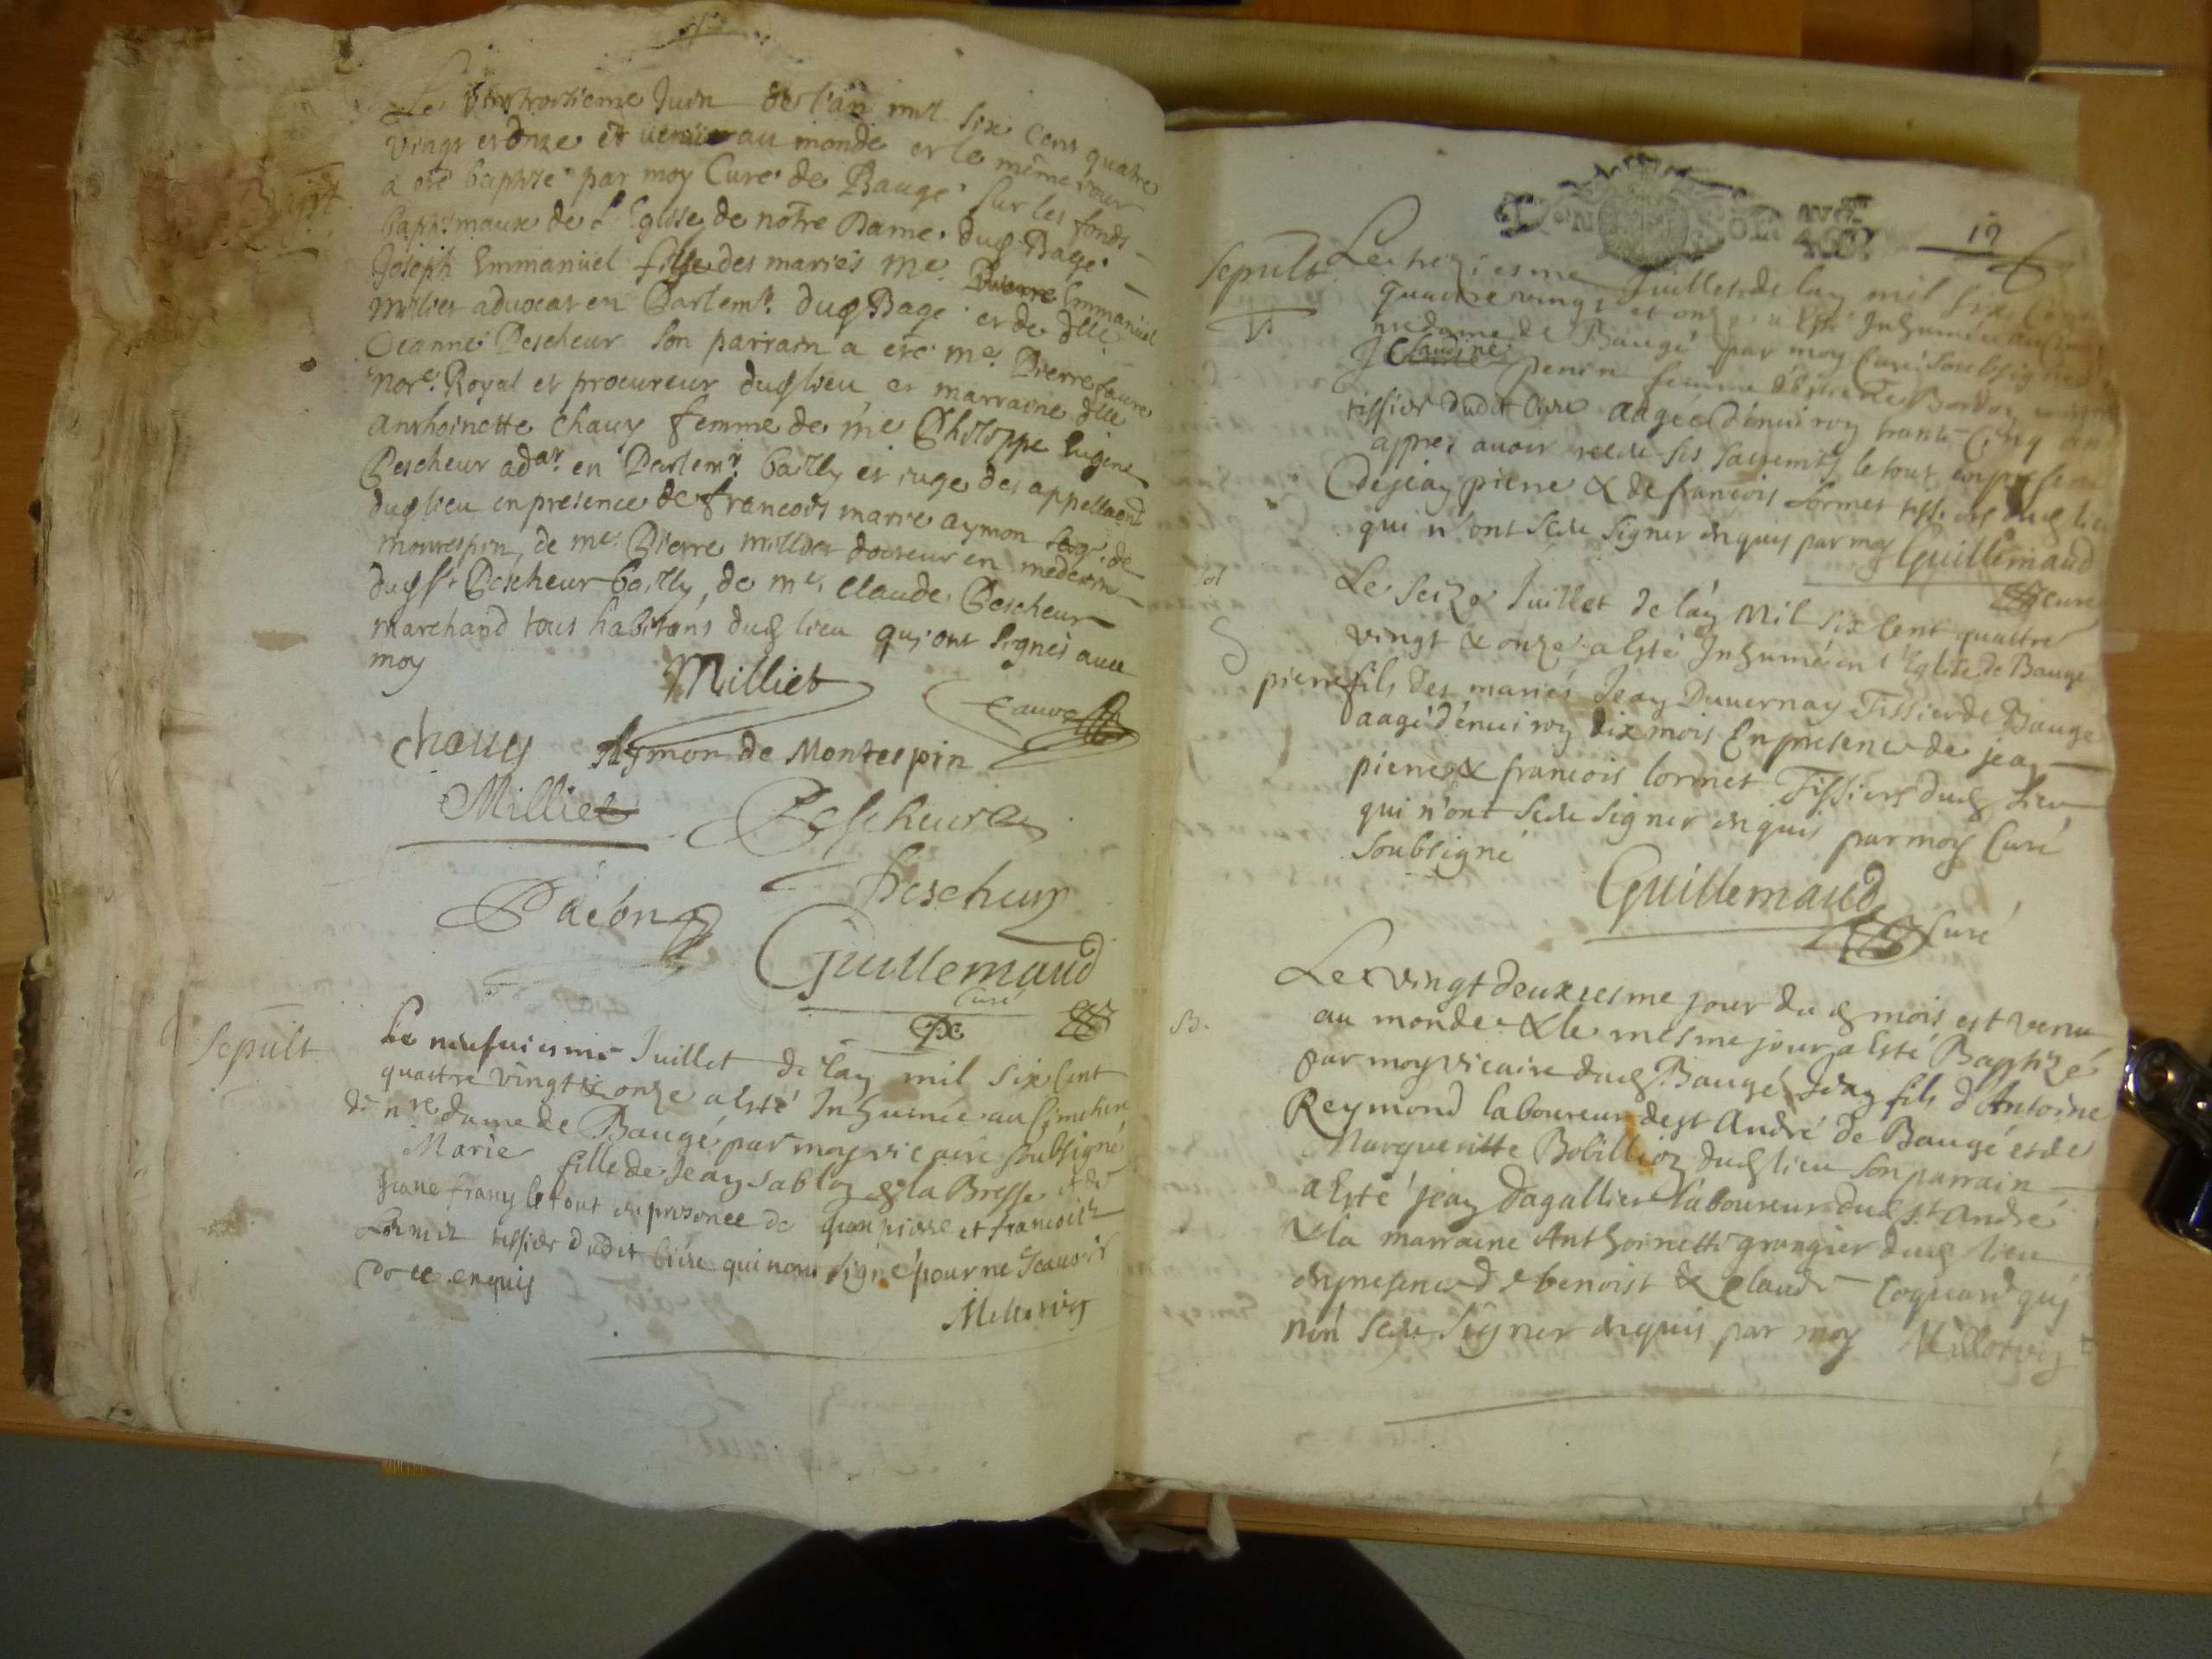 Le vingttroisieme Juin de l'an mil six cens quatre
vingt et onze est venu au monde et le même jour
a eté baptizé par moy Curé de Baugé sur les fonds
bapt
baptismaux de l'Eglise de nôtre Dame dud Bagé
Joseph Emmanüel fils des mariés me Emmanüel
Millier advocat en Parlemt. dud Bagé et de dlle
Jeanne Pescheur son parrain a eté me. Pierre faure
nore. Royal et procureur dud lieu et marraine dlle
anthoinette chauy femme de me Philippe Eugene
Pescheur adat. en Parlemt. bailly et juge des appellaons
dud lieu en presence de francois marie aymon segr. de
montespin, de me. Pierre millier docteur en medecin
dud sr Pescheur bailly, de me. Claude Pescheur
marchand tous habitans dud lieu qui ont signés avec
moy
Milliet
faure
chauy Aymon de Montespin
Milliet Pescheur
Pescheur
Pacon
Guillemaud
Curé
Sepult
Le neufuiesme Juillet de lan mil six Cent
quattre vingt & onze a esté Inhumée au Cimetiere
de nre dame de Baugé par moy vicaire soubsigné
Marie fille de Jean Sablon & la Bresse et de
Jeane frany le tout en presence de Jean pierre et francois
Lormet tissier dudit lieu qui nont signé pour ne scauoir
de ce enquis
Millot vic
12
Sepult
Le treziesme Juillet de lan mil six Cent
quattre vingt et onze a esté Inhumée au
nre dame de Baugé par moy Curé soubsigné
Claudine penin femme d'Estiene Bordon
tissier dudit lieu aagée d'enuiron trante Cinq ans
appres auoir receu ses sacremts le tout en presence
de jean pierre & de francois Lormet tissiers dud lieu
qui n'ont sceu signer enquis par moy Guillemaud
Curé
Le seize Juillet de lan Mil six Cent quattre
vingt & onze a esté Inhumé en l'Eglise de Baugé
pierre fils des mariés Jean Duuernay Tissier de Baugé
aagé d'enuiron dix mois En presence de jean
pierre & francois lormet Tissiers dud Lieu
qui n'ont sceu signer enquis par moy Curé
soubsigné
Guillemaud
Curé
B.
Le vingt deuxiesme jour du d mois est venu
au monde & le mesme jour a esté Baptizé
par moy vicaire dud Baugé Jean fils d'Antoine
Reymond laboureur de st André de Baugé et de
Margueritte Bobillion dud lieu son parrain
a esté jean dagallier laboureur dud st André
& la marraine Anthoinette grangier dud lieu
en presence de benoist & Claude Coquard qui
n'ont sceu signer enquis par moy Millot vic